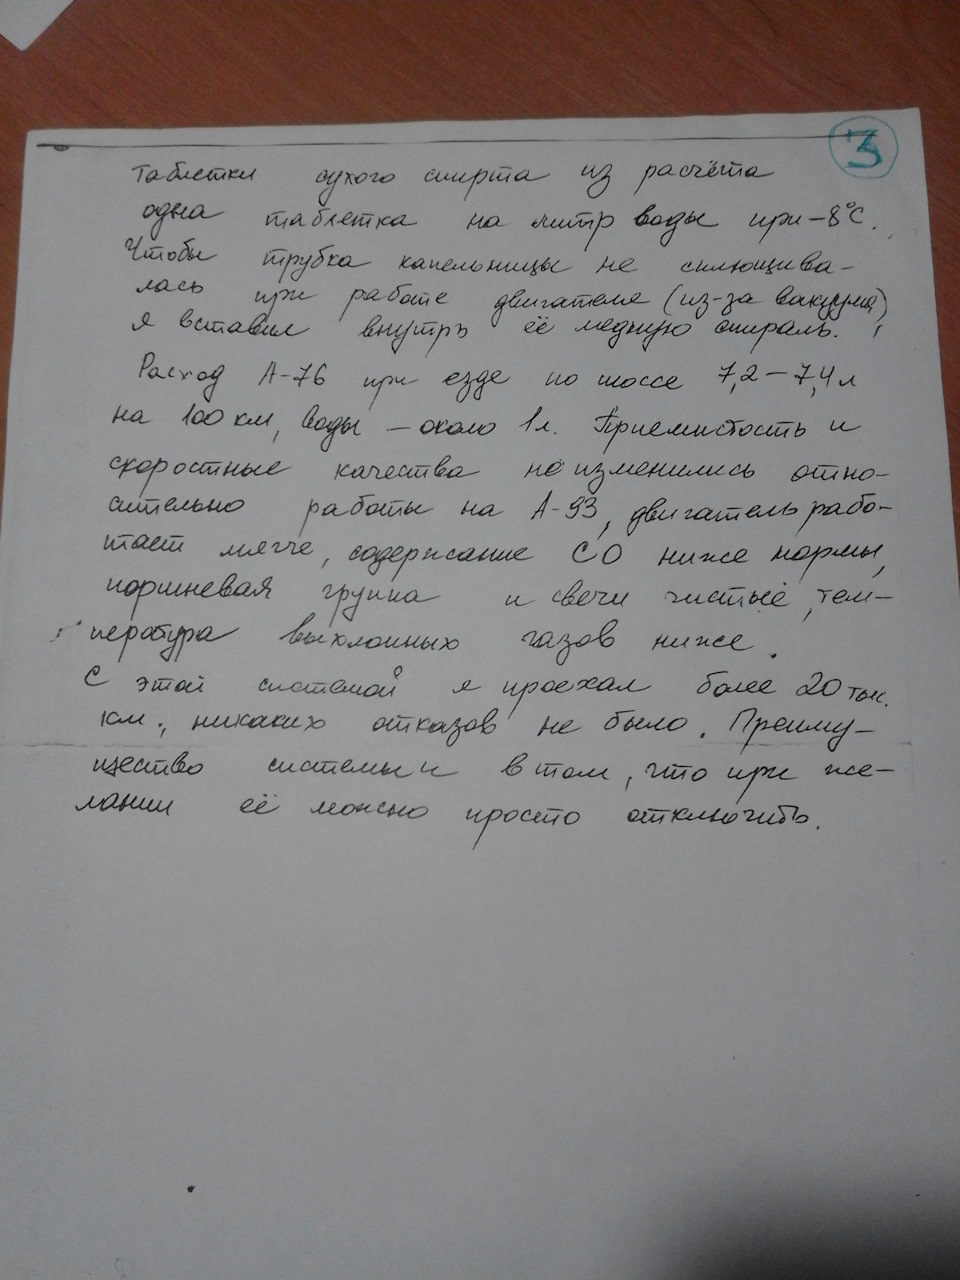 3
таблетки сухого спирта из расчёта
одна таблетка на литр воды при -8°С.
Чтобы трубка капельницы не сплющива-
лась при работе двигателя (из-за вакуума),
я вставил внутрь её медную спираль.
Расход А-76 при езде по шоссе 7,2-7,4 л
на 100 км, воды - около 1 л. Приемистость и
скоростные качества не изменились отно-
сительно работы на А-93, двигатель рабо-
тает мягче, содержание СО ниже нормы,
поршневая группа и свечи чистые, тем-
пература выхлопных газов ниже.
С этой системой я проехал более 20 тыс.
км., никаких отказов не было. Преиму-
щество системы и в том, что при же-
лании её можно просто отключить.